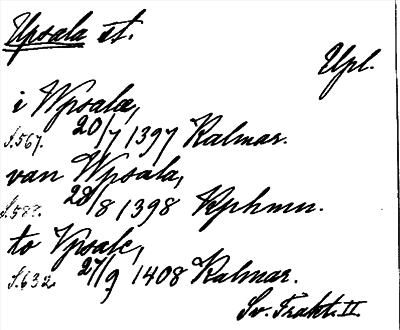 Upsala st.
Upl.
i Wpsalæ,
S.567. 20/7 1397 Kalmar.
van Wpsala,
S.588. 28/8 1398 Kphmn.
to Vpsale,
S.632. 27/9 1408 Kalmar.
Sv. Trakt. II.